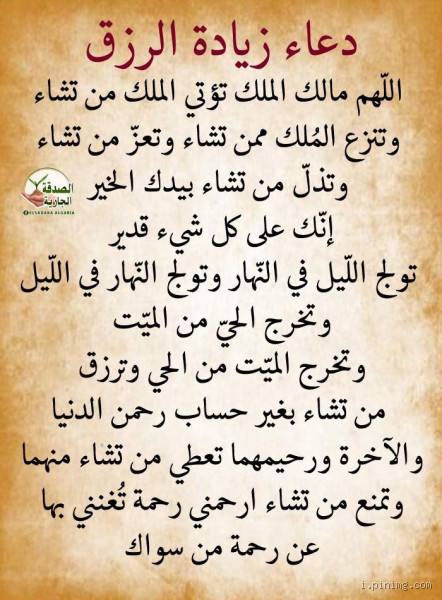 دعاء زيادة الرزق
اللّهم مالك الملك تؤتي الملك من تشاء
وتنزع المُلك ممن تشاء وتعزّ من تشاء
وتذلّ من تشاء بيدك الخير
إنّك على كل شيء قدير
تولج اللّيل في النّهار وتولج النّهار في اللّيل
وتخرج الحيّ من الميّت
وتخرج الميّت من الحي وترزق
من تشاء بغير حساب رحمن الدنيا
والآخرة ورحيمهما تعطي من تشاء منهما
وتمنع من تشاء ارحمني رحمة تُغنني بها
عن رحمة من سواك
الصدقة
الجارية
ELSADAKA ALGARIA
i.pinimg.com